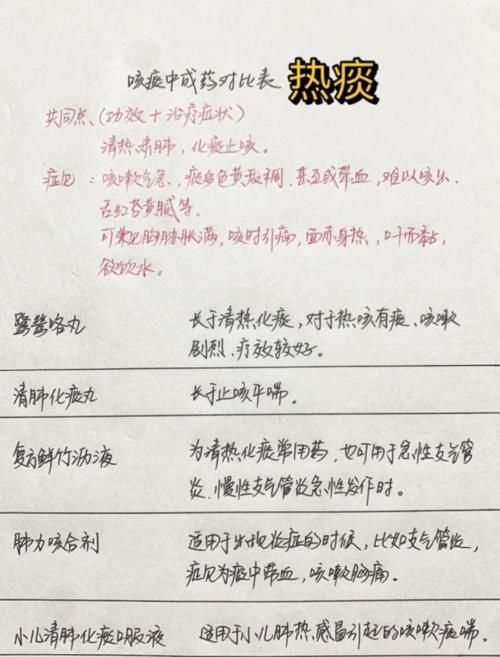 咳痰中成药对比表 热痰
共同点、(功效 + 治疗症状)
清热肃肺，化痰止咳。
症见：咳嗽气急、痰多色黄板稠，甚至或带血，难以咳出、
舌红苔黄腻等。
可兼见胸胁胀满，咳时引痛，面赤身热，口干而黏，
欲饮水。
鹭鸶咯丸 长于清热化痰，对于热咳有痰、咳嗽
剧烈、疗效较好。
清肺化痰丸 长于止咳平喘。
复方鲜竹沥液 为清热化痰常用药，也可用于急性支气管
炎、慢性支气管炎急性发作时。
肺力咳合剂 适用于出现炎症的时候，比如支气管炎，
症见为痰中带血，咳嗽胸痛。
小儿清肺化痰口服液 适用于小儿肺热感冒引起的咳嗽痰喘。